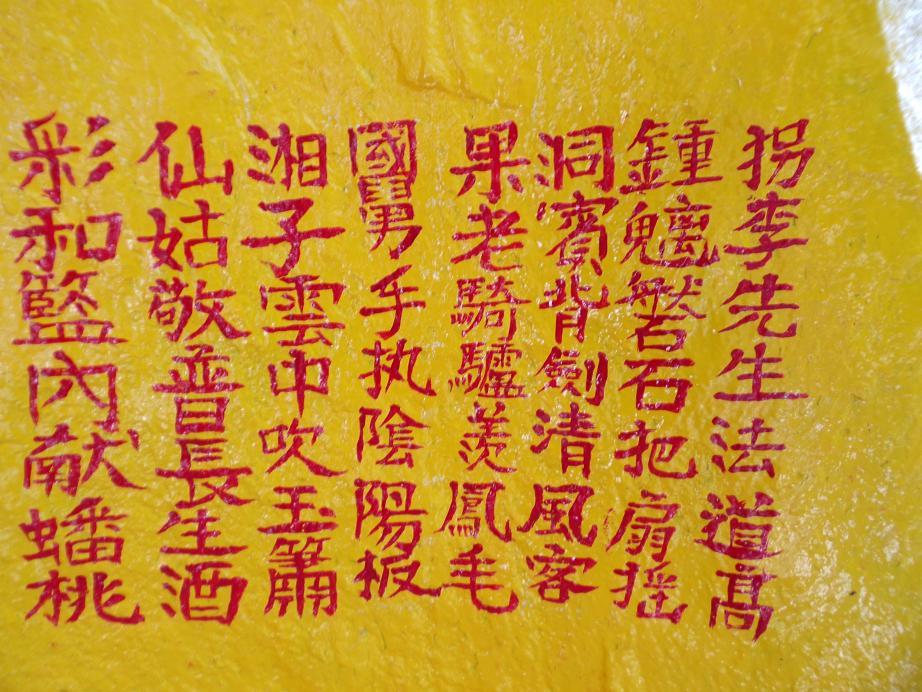 拐李先生法道髙
鍾魑磐石把扇摇
洞賓背劍清風客
果老騎驢羨鳳毛
國舅手执陰陽板
湘子雲中吹玉簫
仙姑敬普長生酒
彩和籃內献蟠桃